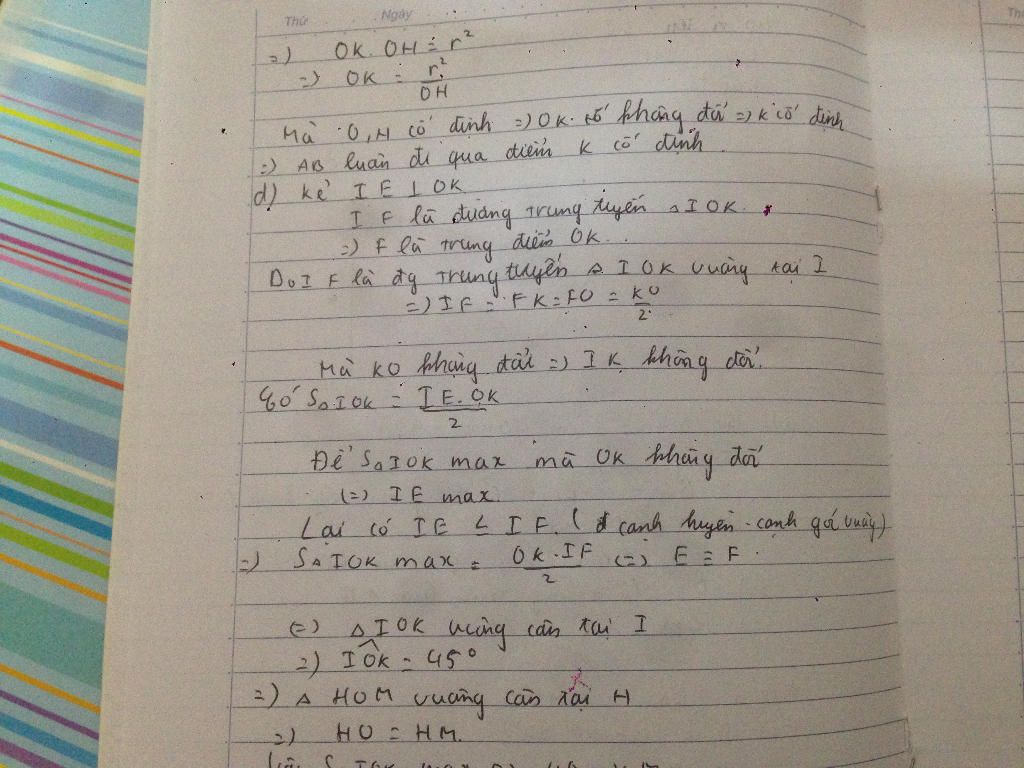 Thứ Ngày Thứ
=) OK. OH = r²
=) OK = r²/OH
Mà O, H cố định =) OK không đổi =) K cố định
=) AB luôn đi qua điểm K cố định
d) Kẻ IE ⊥ OK
IF là đường trung tuyến △IOK.
=) F là trung điểm OK.
Do IF là đg trung tuyến △IOK vuông tại I
=) IF = FK = FO = KO/2
Mà KO không đổi =) IK không đổi.
Có S△IOK = IE.OK/2
Để S△IOK max mà OK không đổi
(=) IE max.
Lại có IE ≤ IF. (cạnh huyền - cạnh góc vuông)
=) S△IOK max = OK.IF/2 (=) E ≡ F.
(=) △IOK vuông cân tại I
=) IÔK = 45°
=) △HOM vuông cân tại H
=) HO = HM.
S△IOK max